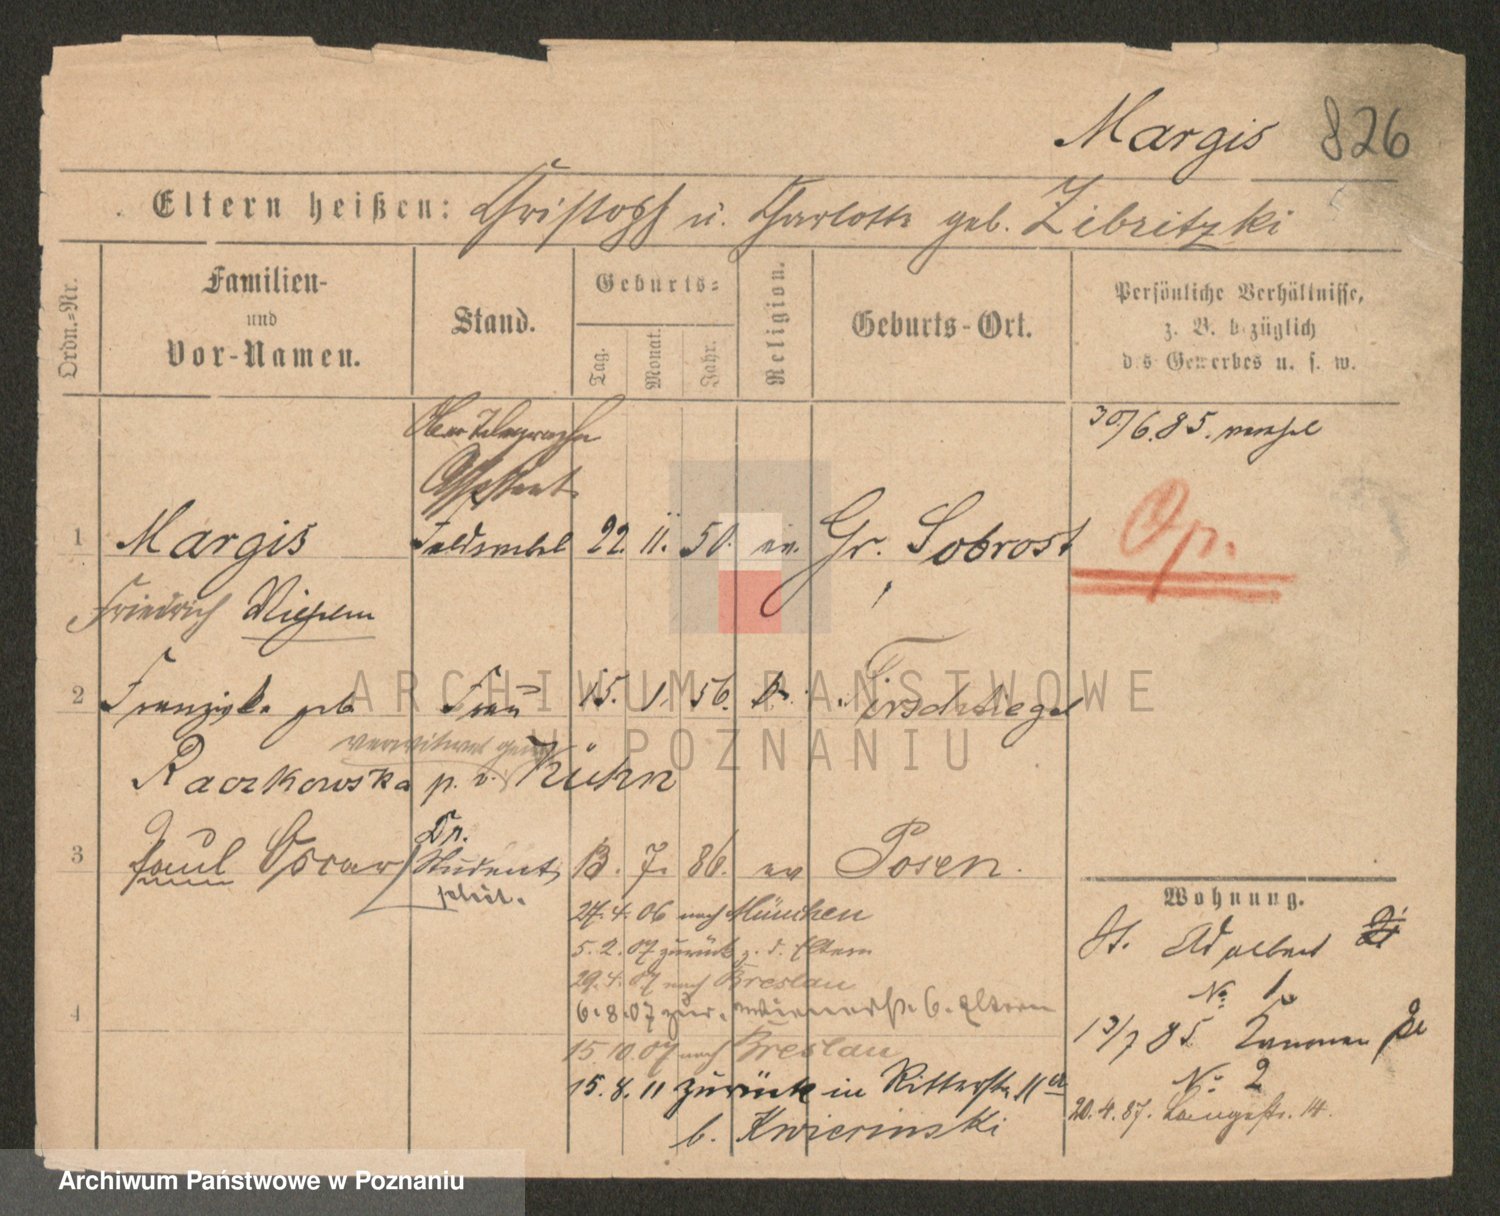 Margis 826
Eltern heißen: Christoph u. Charlotte geb. Zibritzki
Ordn.-Nr.
Familien-
und
Vor-Namen.
Stand.
Geburts-
Tag.
Monat.
Jahr.
Religion.
Geburts-Ort.
Persönliche Verhältnisse,
z. B. bezüglich
des Gewerbes u. s. w.
Ober Telegraphen
Assistent
30/6.85.
1 Margis Feldwebel 22. 11. 50. ev. Gr. Sobrost
Op.
Friedrich
2 Franziska geb Frau 15. 1. 56. Tirschtiegel
verwitwet
Raczkowska p. v. Kühn
Dr.
3 Paul Oscar Student 13. 7. 86. ev Posen.
phil.
24. 4. 06 nach München
5. 2. 07 zurück z. d. Eltern
29. 4. 07 nach Breslau
4 6.8.07 zur. b. Eltern
15 10. 07 nach Breslau
15. 8. 11 zurück in Ritterstr. 11
b. Kwierinski
Wohnung.
St. Adalbert
No 1.
13/7 85 Kanonen
No 2
20. 4. 87. Langestr. 14.
ARCHIWUM PAŃSTWOWE
W POZNANIU
Archiwum Państwowe w Poznaniu